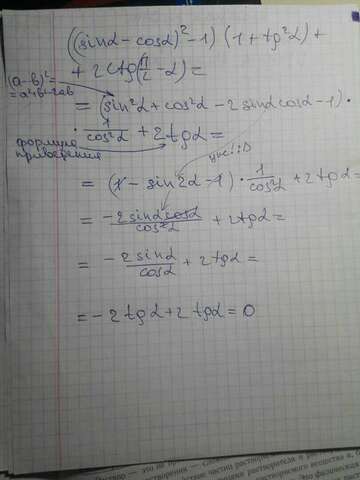 ((sinα - cosα)² - 1) (1 + tg²α) +
+ 2 ctg(π/2 - α) =
(a-b)² =
= a²+b²-2ab
= (sin²α + cos²α - 2 sinα cosα - 1) ·
· 1/cos²α + 2 tgα =
формула
приведения
= (1 - sin2α - 1) · 1/cos²α + 2 tgα =
= -2 sinα cosα / cos²α + 2 tgα =
= -2 sinα / cosα + 2 tgα =
= -2 tgα + 2 tgα = 0